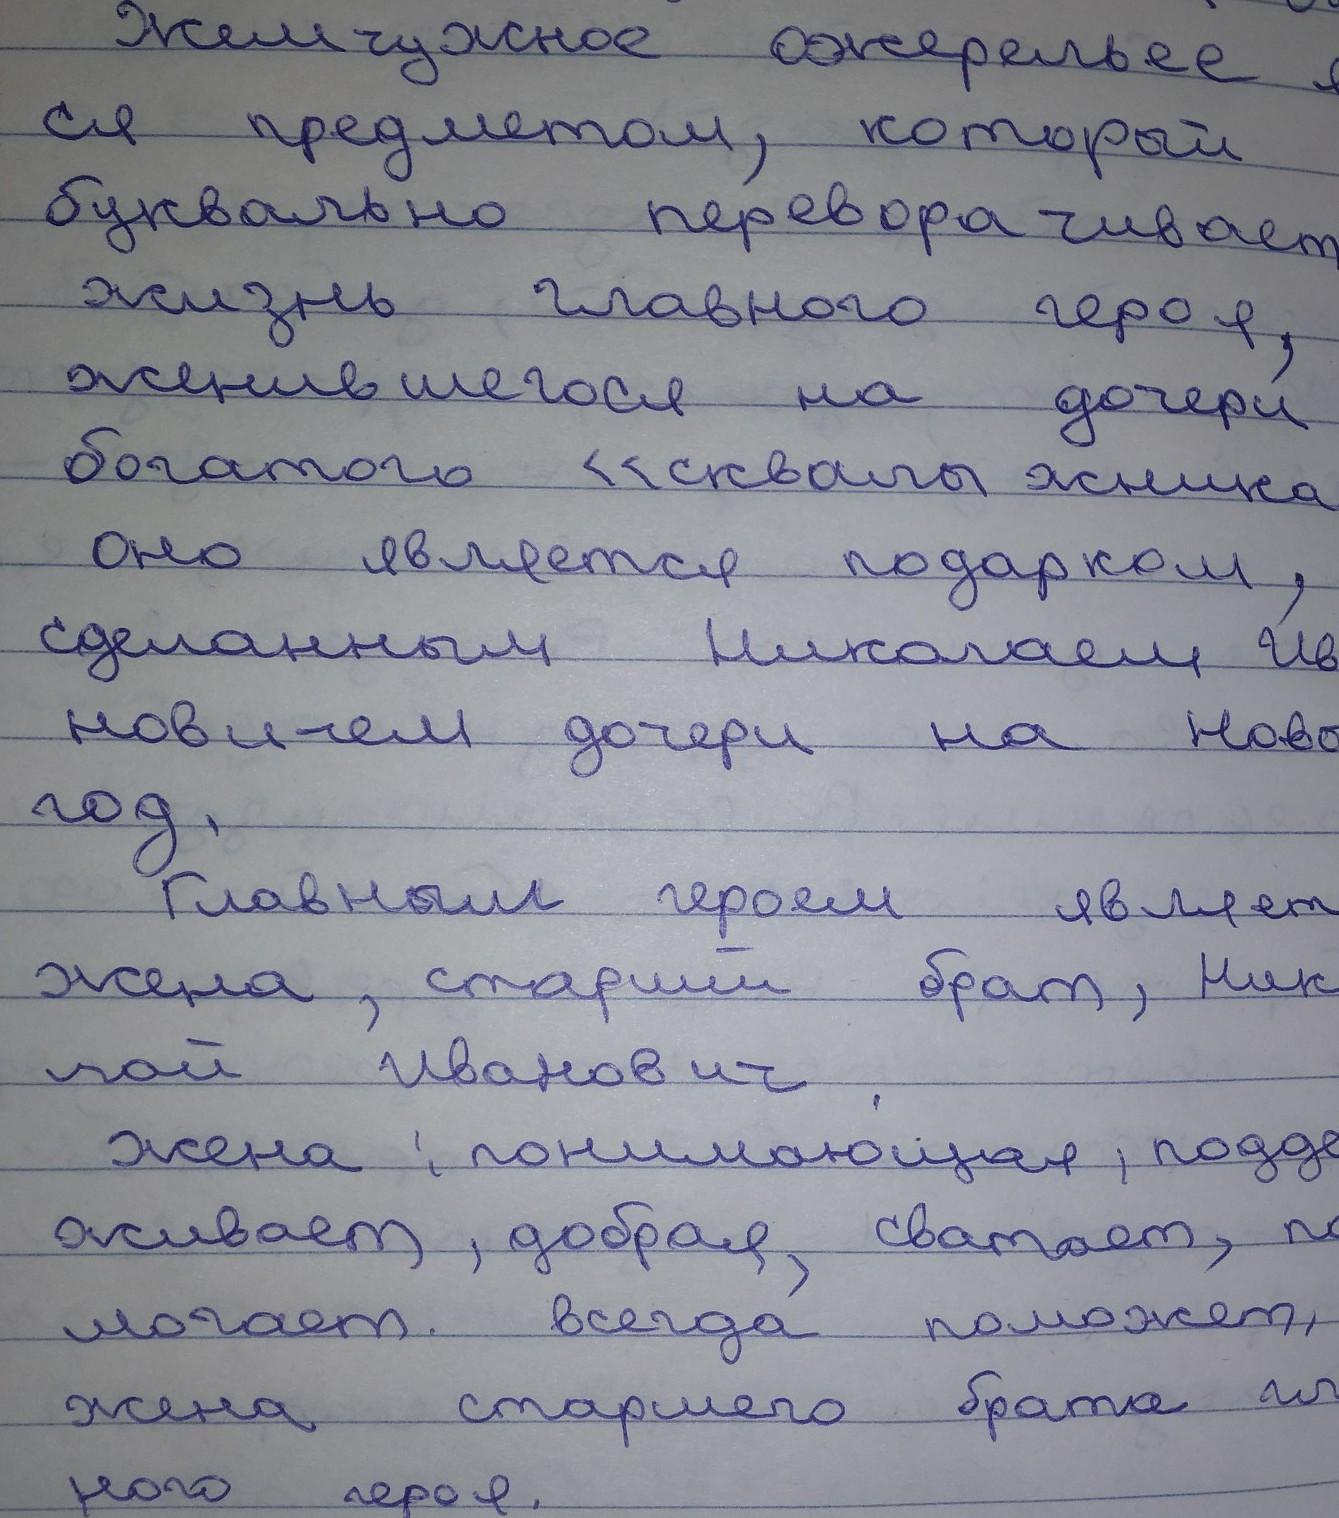 Жемчужное ожерельее я
ся предметом, который
буквально переворачивает
жизнь главного героя,
женившегося на дочери
богатого «сквалыжника
оно является подарком,
сделанным Николаем Ив
новичем дочери на Ново
год.
Главным героем являет
жена, старший брат, Ник
лай Иванович.
жена: понимающая, подде
живает, добрая, сватает, по
могает. всегда поможет,
жена старшего брата гл
ного героя.